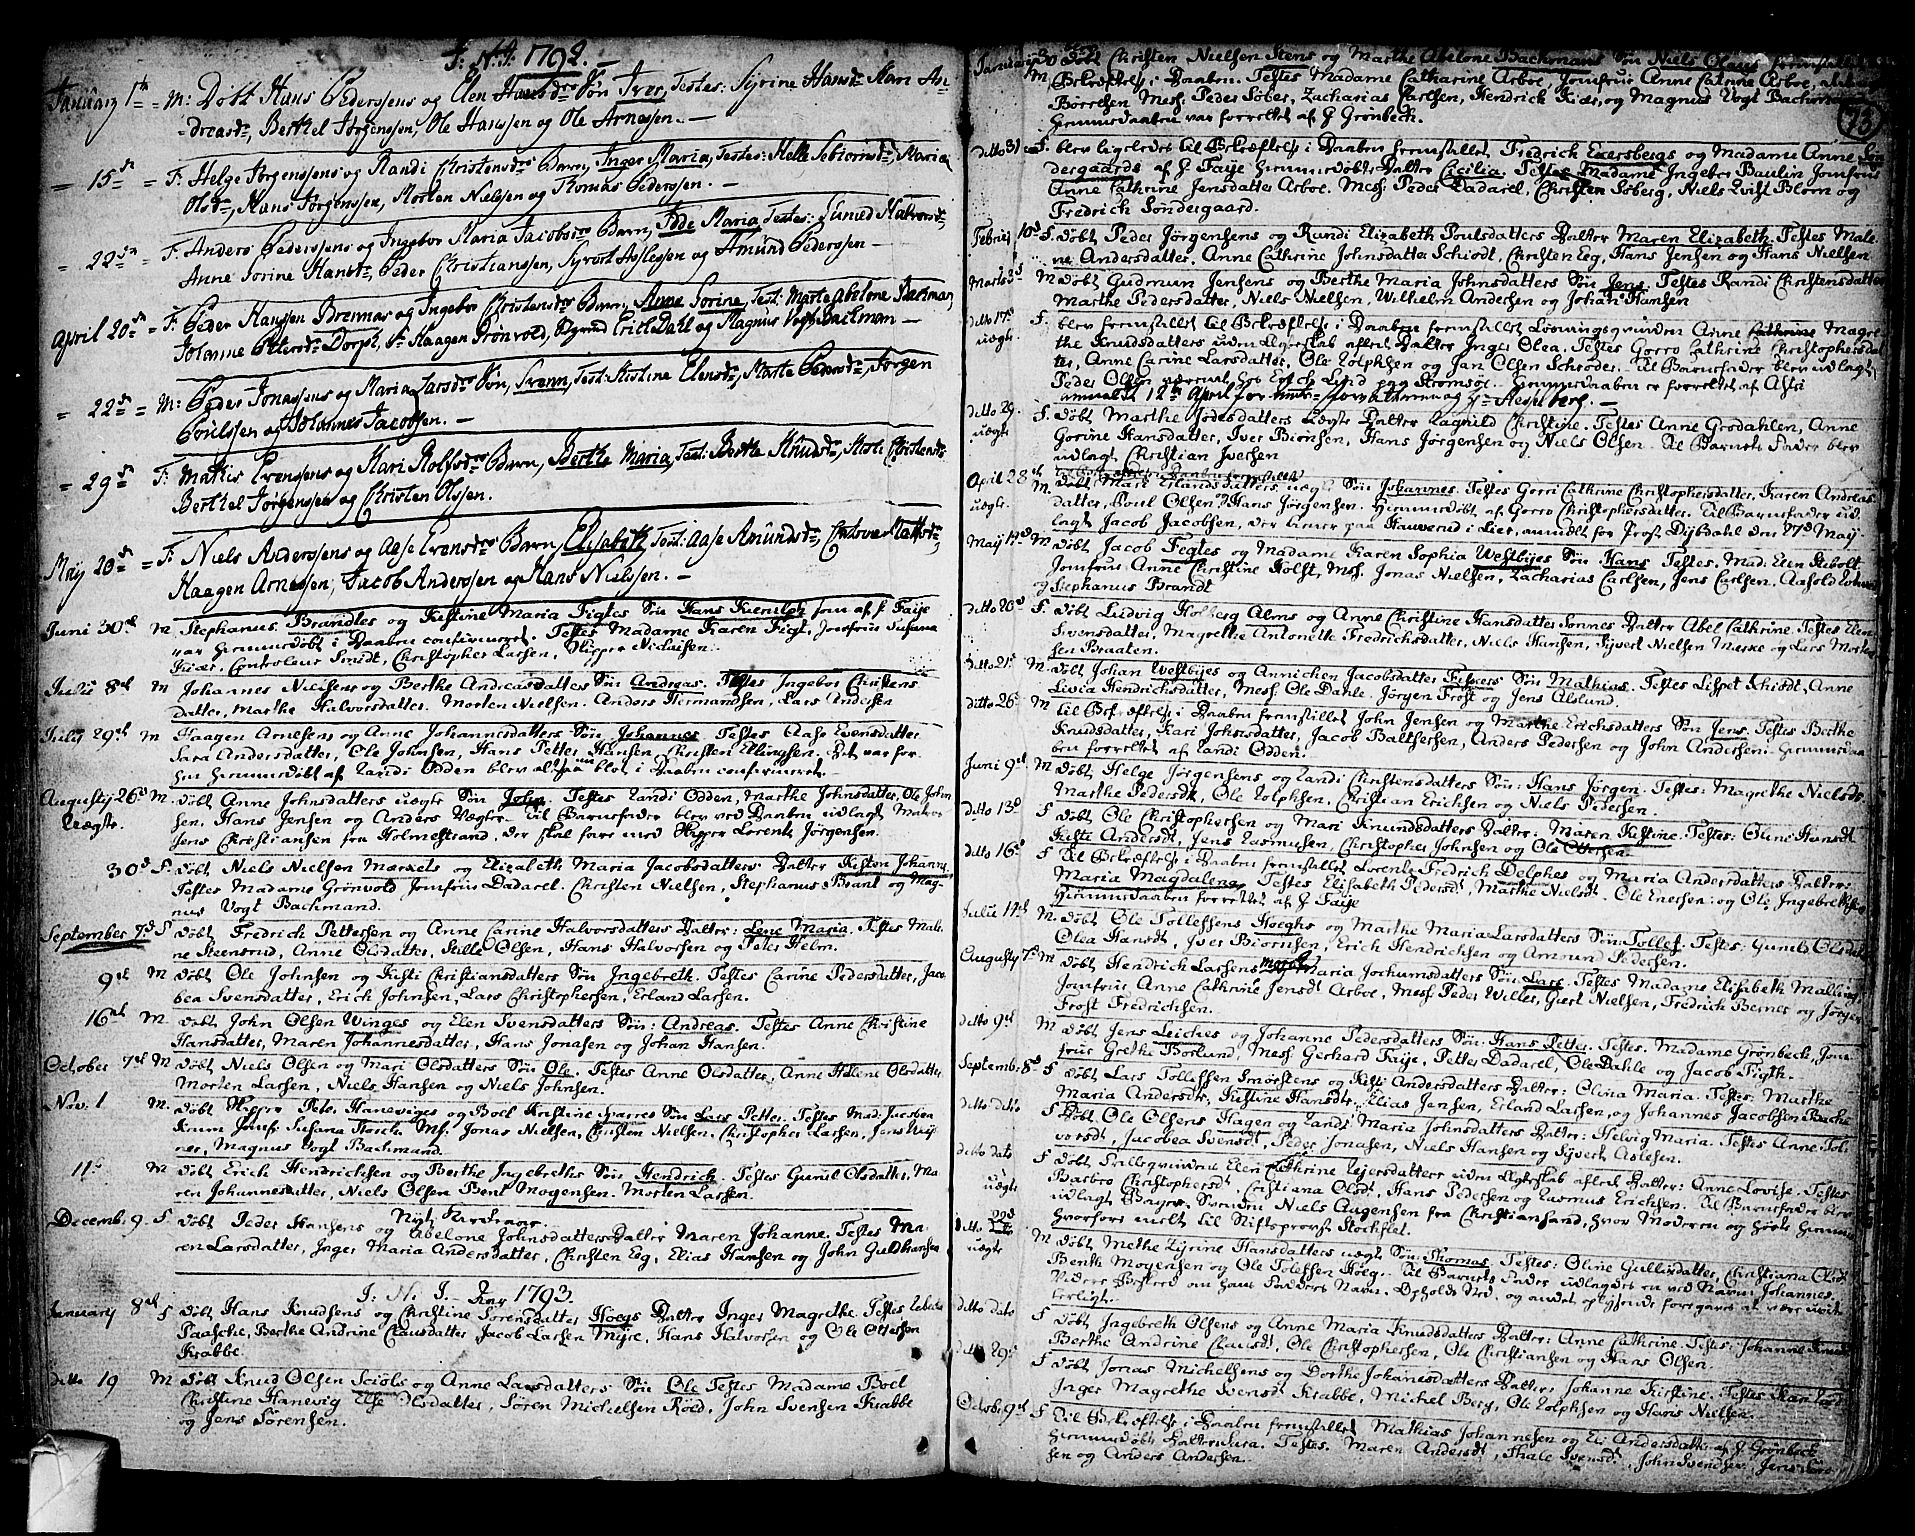 J: N: J: 1792. –
January 1te M: Døbt Hans Pedersens og Elen Hansdrs Søn Iver, Testes: Syrine Hansdr Mari An-
dreasdr, Berthel Jørgenssen, Ole Hanssen og Ole Arnessen. –
= 15de = F: Helge Jørgenssens og Randi Christensdrs Barn, Inger Maria, Testes: Helle Maria
Olsdr, Hans Jørgenssen, Morten Nielssen og Thomas Pederssen. –
= 22de = F: Anders Pederssens og Ingebor Maria Jacobsdr Barn, Maria Testes: Halvorsdr,
Anne Sorine Hansdr, Peder Christianssen, Syvert Asslessen og Amund Pederssen –
April 20de F: Peder Hanssen Brennas og Ingebor Christensdrs Barn, Anne Sorine, Test: Marte Abelone Bakman,
Johanne Pettersdr Dorph, Hr Haagen Grønvold, Erichs Dahl og Magnus Vogt Bachman –
= 22de = M: Peder Jonassens og Maria Larsdrs Søn, Svenn, Test: Kistine Elensdr, Marte Pedersdr, Jørgen
Poulssen og Johannes Jacobsen.
= 29de F: Mathis Evenssens og Kari Rolfsdrs Barn, Berthe Maria, Test: Berthe Knudsdr, Christensdr
Berthel Jørgenssen og Christen Olssen.
May 20de = F: Niels Anderssens og Aase Evensdrs Barn, Elisabeth Test: Aase Amundsdr,
Haagen Arnessen, Jacob Anderssen og Hans Nielssen. –
Juni 30te M Stephanus Brandtes og Kistine Maria Figtes Søn Hans Kierulph som af J. Faije
var hiemmedøbt i Daaben confirmeret. Testes Madame Karen Figt, Jomfrue Susana
Kiær. Controleur Smidt, Christopher Larsen, Skipper Niclaisen.
Julii 8de M Johannes Nielsens og Berthe Andreasdatters Søn Andreas. Testes Ingebor Christens
datter, Marthe Halvorsdatter. Morten Nielsen. Anders Hermandsen, Lars Andersen
Julij 29de M Haagen Arnesens og Anne Johannesdatters Søn Johannes Testes Aase Evensdatter.
Sara Andersdatter, Ole Johnsen, Hans Petter Hansen, Christen Ellingsen. Det var for-
hen hiemmedøbt af Randi Odden blev altsaa nu blot i Daaben confirmeret.
Augustij 26de M. døbt Anne Johnsdatters uægte Søn John. Testes Randi Odden, Marthe Johnsdatter, Ole John
Uægte. sen. Hans Jensen og Anders Vægter. Til Barnefader blev ved Daaben udlagt Matros
Jens Christiansen fra Holmestrand, der skal fare med Skipper Lorents Jørgensen.
30de F. døbt Niels Nielsen Morxels og Elizabeth Maria Jacobsdatters Datter Kisten Johanne
Testes Madame Grønvold Jomfrue Dadarel. Christen Nielsen, Stephanus Brant og Mag-
nus Vogt Bachmand.
September 7de F døbt Fredrich Pettersen og Anne Carine Halvorsdatters Datter: Lene Maria. Testes Male-
ne Steensrud, Anne Olsdatter, Helle Olsen, Hans Halvorsen og Peter Helm.
9de M døbt Ole Johnsen og Kisti Christiansdatters Søn Ingebreth. Testes Carine Pedersdatter, Jaco
bea Svensdatter, Erich Johnsen, Lars Christophersen, Erland Larsen.
16de M. døbt John Olsen Winges og Elen Svensdatters Søn: Andreas. Testes Anne Christine
Hansdatter, Maren Johannesdatter, Hans Jonasen og Johan Hansen.
October 7de M døbt Niels Olsen og Mari Olsdatters Søn Ole. Testes Anne Olsdatter, Anne Helene Olsdatter
Morten Larsen, Niels Hansen og Niels Johnsen.
Nov. 1 M. døbt Skipper Peter Haneviges og Boel Kirstine Sparres Søn Lars Petter. Testes Mad. Jacobea
Knum Jomfr Susana Stark. Ms. Jonas Nielsen, Christen Nielsen. Christopher Larsen, Jens Wij
ner, Magnus Vogt Bachmand.
11te M døbt Erich Hendrichsen og Berthe Ingebreths Søn Hendrich. Testes Gunil Olsdatter, Ma
ren Johannesdatter, Niels Olsen Bent Mogensen. Morten Larsen.
Decemb. 9. F døbt Peder Hansens og Abelone Johnsdatters Datter Maren Johanne. Testes Ma-
ren Larsdatter, Inger Maria Andersdatter, Christen Eeg, Elias Hansen og John Guldhansen
J: N: J. Anno 1793.
January 8de F døbt Hans Knudsens og Christine Sørensdatter Hoegs Datter Inger Magrethe. Testes
Paaske, Berthe Andrine Clausdatter Jacob Larsen Myre, Hans Halvorsen og Ole Ottersen
Krabbe.
ditto 19 M døbt Knud Olsen Sciols og Anne Larsdatters Søn Ole Testes Madame Boel
Christine Hanevig Else Olsdatter, Søren Michelsen Røed, John Svensen Krabbe
og Jens Sørensen.
73
Januarij 30 døbt Christen Nielsen Stens og Marthe Abelone Bachmans Søn Niels
M Bekræftelse i Daaben. Testes Madame Catharine Arboe, Jomfrue Anne Catrine Arboe,
Børresen Mess. Peder Søber, Zacharias Carlsen, Hendrick Kiær, og Magnus Vogt Bachman
Hiemmedaaben var forrettet af J Grønbeck.
ditto 31 F. blev ligeledes til Bekræftelse i Daaben fremstillet Fredrich Exersbergs og Madame Anne Søn
dergaards af J Faije hiemmedøbt Datter Cicilia. Testes Madame Ingebor Paulin Jomfrue
Anne Cathrine Jensdatter Arboe. Mess. Peder Dadarel, Christen Søberg, Niels Qvist Blom og
Fredrich Søndergaard.
Febrier 10de F. døbt Peder Jörgensens og Rundi Elizabeth Poulsdatters Datter Maren Elizabeth. Testes Male
ne Andersdatter. Anne Cathrine Johnsdatter Schiødt, Christen Eeg, Hans Jensen og Hans Nielsen
Marts 3de M døbt Gudmun Jensens og Berthe Maria Johnsdatters Søn Jens Testes Randi Christensdatter
Marthe Pedersdatter, Niels Nielsen, Wilhelm Andersen og Johan Hansen
ditto 17de F. blev fremstillet til Bekræftelse i Daaben fremstillet Løsningsqvinden Anne Cathrine Magre
uægte the Knudsdatters uden Ægteskab aflet Datter Inger Olea. Testes Gorro Cathrine Christophersdat
ter, Anne Carine Larsdatter, Ole Rolphsen og Jan Olsen Schrøder. Til Barnefader blev udlagt
Peder Olsen paa Strømsøe. Hiemmedaaben er forrettet af Asti
anmeldt 12te April for
ditto 29. F. døbt Marthe Jodesdatters Uægte Datter Ragnild Christine. Testes Anne Grodahlen, Anne
uægte Gorine Hansdatter, Iver Biønsen, Hans Jörgensen og Niels Olsen. Til Barnets Fader blev
udlagt Christian Iversen
April 28de til Bekræftelse i Daaben fremstillet
M. døbt Mari Elandsdatters uægte Søn Johannes. Testes Gorri Cathrine Christophersdatter, Karen Andreas
uægte. datter, Poul Olsen og Hans Jörgensen. Hiemmedøbt af Gorro Christophersdatter. Til Barnefader ud
lagt Jacob Jacobsen, der tiener paa Hauverud i Lier, anmeldt for Prost Dijbdahl den 27de Maij
Maij 17de M døbt Jacob Fegtes og Madame Karen Sophia Westbijes Søn Hans Testes. Mad. Elen Stibolt
Jomfrue Anne Christine Holst, Mess. Jonas Nielsen, Zacharias Carlsen, Jens Carlsen. Aasold
og Stephanus Brandt
ditto 20de F. døbt Ludvig Holberg Alms og Anne Christine Hansdatter Sonnes Datter Abel Cathrine. Testes Elen
Svensdatter, Magrethe Antonette Fredrichsdatter, Niels Hansen, Sijvert Nielsen Merke og Lars Morten
sen Braaten.
ditto 21de M. døbt Johan Westbijes og Annichen Jacobsdatter Fiskers Søn Mathias. Testes Lispet Schiødt, Anne
Livia Hendrichsdatter, Mess. Ole Dahle. Jörgen Frost og Jens Aslund.
ditto 26de M til Bekræftelse i Daaben fremstillet John Jensen og Marthe Erichsdatters Søn Jens. Testes Berthe
Knudsdatter, Kari Johnsdatter, Jacob Balthersen, Anders Pedersen og John Andersen. Hiemmedaa
ben forrettet af Randi Odden.
Juni 9de M døbt Helge Jörgensens og Randi Christensdatters Søn: Hans Jörgen. Testes: Magrethe Nielsdr.
Marthe Pedersdr, Ole Rolphsen. Christian Erichsen og Niels Pedersen.
ditto 13de F døbt Ole Christophersen og Mari Knudsdatters Datter: Maren Kistine. Testes: Olune Hansdr
Kisti Andersdr, Jens Rasmusen, Christopher Johnsen og Ole Ottersen.
ditto 16de F Til Bekræftelse i Daaben fremstillet Lorents Fredrich Delphes og Maria Andersdatters Datter:
Maria Magdalena. Testes Elisabeth Pedersdr Marthe Nielsdr. Ole Enersen og Ole Ingebrethsen
Hiemmedaaben forrettet af J Faije
Julii 14de M. døbt Ole Tollefsens Hoeghs og Marthe Maria Larsdatters Søn: Tollef. Testes: Gunild Olsdatter
Olea Hansdr, Iver Biörnsen, Erich Hendrichsen og Amound Pedersen.
Augustij 7de M døbt Hendrich Larsens og Maria Jochumsdatters Søn: Lars. Testes Madame Elisabeth Malling,
Jomfrue Anne Cathrine Jensdr Arboe, Mess. Peder Willes, Giert Nielsen, Fredrich Berner og Jörgen
Frost Fredrichsen.
ditto 9de M døbt Jens Leiches og Johanne Pedersdatters Søn Hans Petter. Testes. Madame Grønbeck, Jom-
frue Grethe Borlund, Mess. Gerhard Faije, Petter Dadarel, Ole Dahle og Jacob Figth.
Septemb. 8de F døbt Lars Tollefsen Smörstens og Kisti Andersdatters Datter: Olina Maria. Testes: Marthe
Maria Andersdr. Kistine Hansdr. Elias Jensen, Erland Larsen og Johannes Jacobsen Bache
ditto ditto F Døbt Ole Olsens Hagen og Rands Maria Johnsdatters Datter: Helvig Maria. Testes Anne Tol-
versdr, Jacobea Svensdr Peder Jonasen, Niels Hansen og Sijvert Aslesen.
ditto dato F døbt Stillesqvinden Elen Cathrine Reijersdatters uden Ægteskab aflede Datter: Anne Lovise. Testes
uægte Barbro Christophersdr, Cristiana Olsdr, Hans Pedersen og Rasmus Erichsen. Til Barnefader blev
udlagt Bager Svenden Niels Augensen fra Christiansand, hvor Moderen og
hvorfore meldt til Stiftsprovst Stockflet.
ditto 22de M døbt Methe Zijrine Hansdatters uægte Søn: Thomas. Testes: Oline Gulliksdatter, Christiana Olsdr
uægte Benth Mogensen og Ole Tollefsen Hoeg. Til Barnets Fader udlagdes en ved Navn Johannes.
Videre Beskeed om hans Faders Navn. Opholds Sted, og andet opgivende foregaves at være uvit
terligt.
ditto dato F døbt Ingebreth Olsens og Anne Maria Knudsdatters Datter: Anne Cathrine. Testes: Johanne Knudsdr
Berthe Andrine Clausdr, Ole Christophersen, Ole Christiansen og Hans Olsen.
ditto 29de F døbt Jonas Michelsens og Dorthe Johanesdatters Datter: Johanne Kirstine. Testes Karen
Inger Magrethe Svensdr Krabbe, Michel Berg, Ole Rolphsen og Hans Nielsen.
October 9de F Til Bekræftelse i Daaben fremstillet Mathias Johannesen og Eli Andersdatter af J. Grønbeck
hiemmedøbt Datter Sara. Testes. Maren Andersdr, Thale Svensdr, John Svendsen, Jens
sen og Anders Andersen.